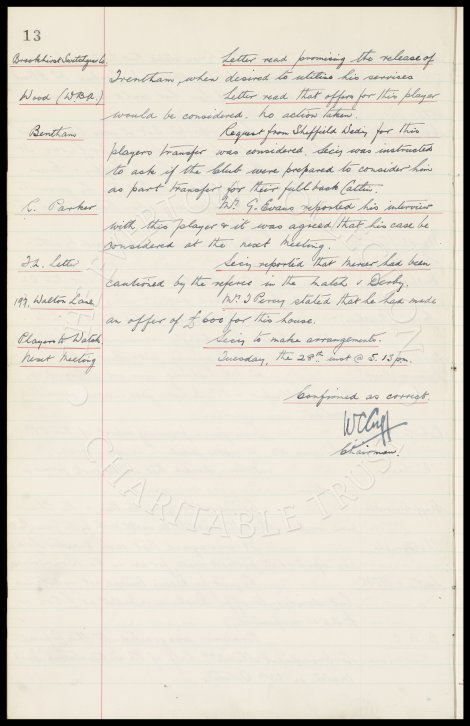 13
Brookhirst Switchgear Co. Letter read promising the release of
Trentham, when desired to utilise his services
Wood (W.B.A.) Letter read that offers for this player
would be considered. No action taken.
Bentham Request from Sheffield Wedy for this
players transfer was considered. Secy was instructed
to ask if the Club were prepared to consider him
as part transfer for their full back Catlin.
R. Parker Mr. G. Evans reported his interview
with this player & it was agreed that his case be
considered at the next meeting.
F.L. Letter Secy reported that Mercer had been
cautioned by the referee in the match v Derby.
199, Walton Lane, Mr. J Percy stated that he had made
an offer of £600 for this house.
Players to Watch Secy to make arrangements.
Next Meeting Tuesday, the 28th inst @ 5.15 pm.
Confirmed as correct.
W C Cuff
Chairman!
CHARITABLE TRUST